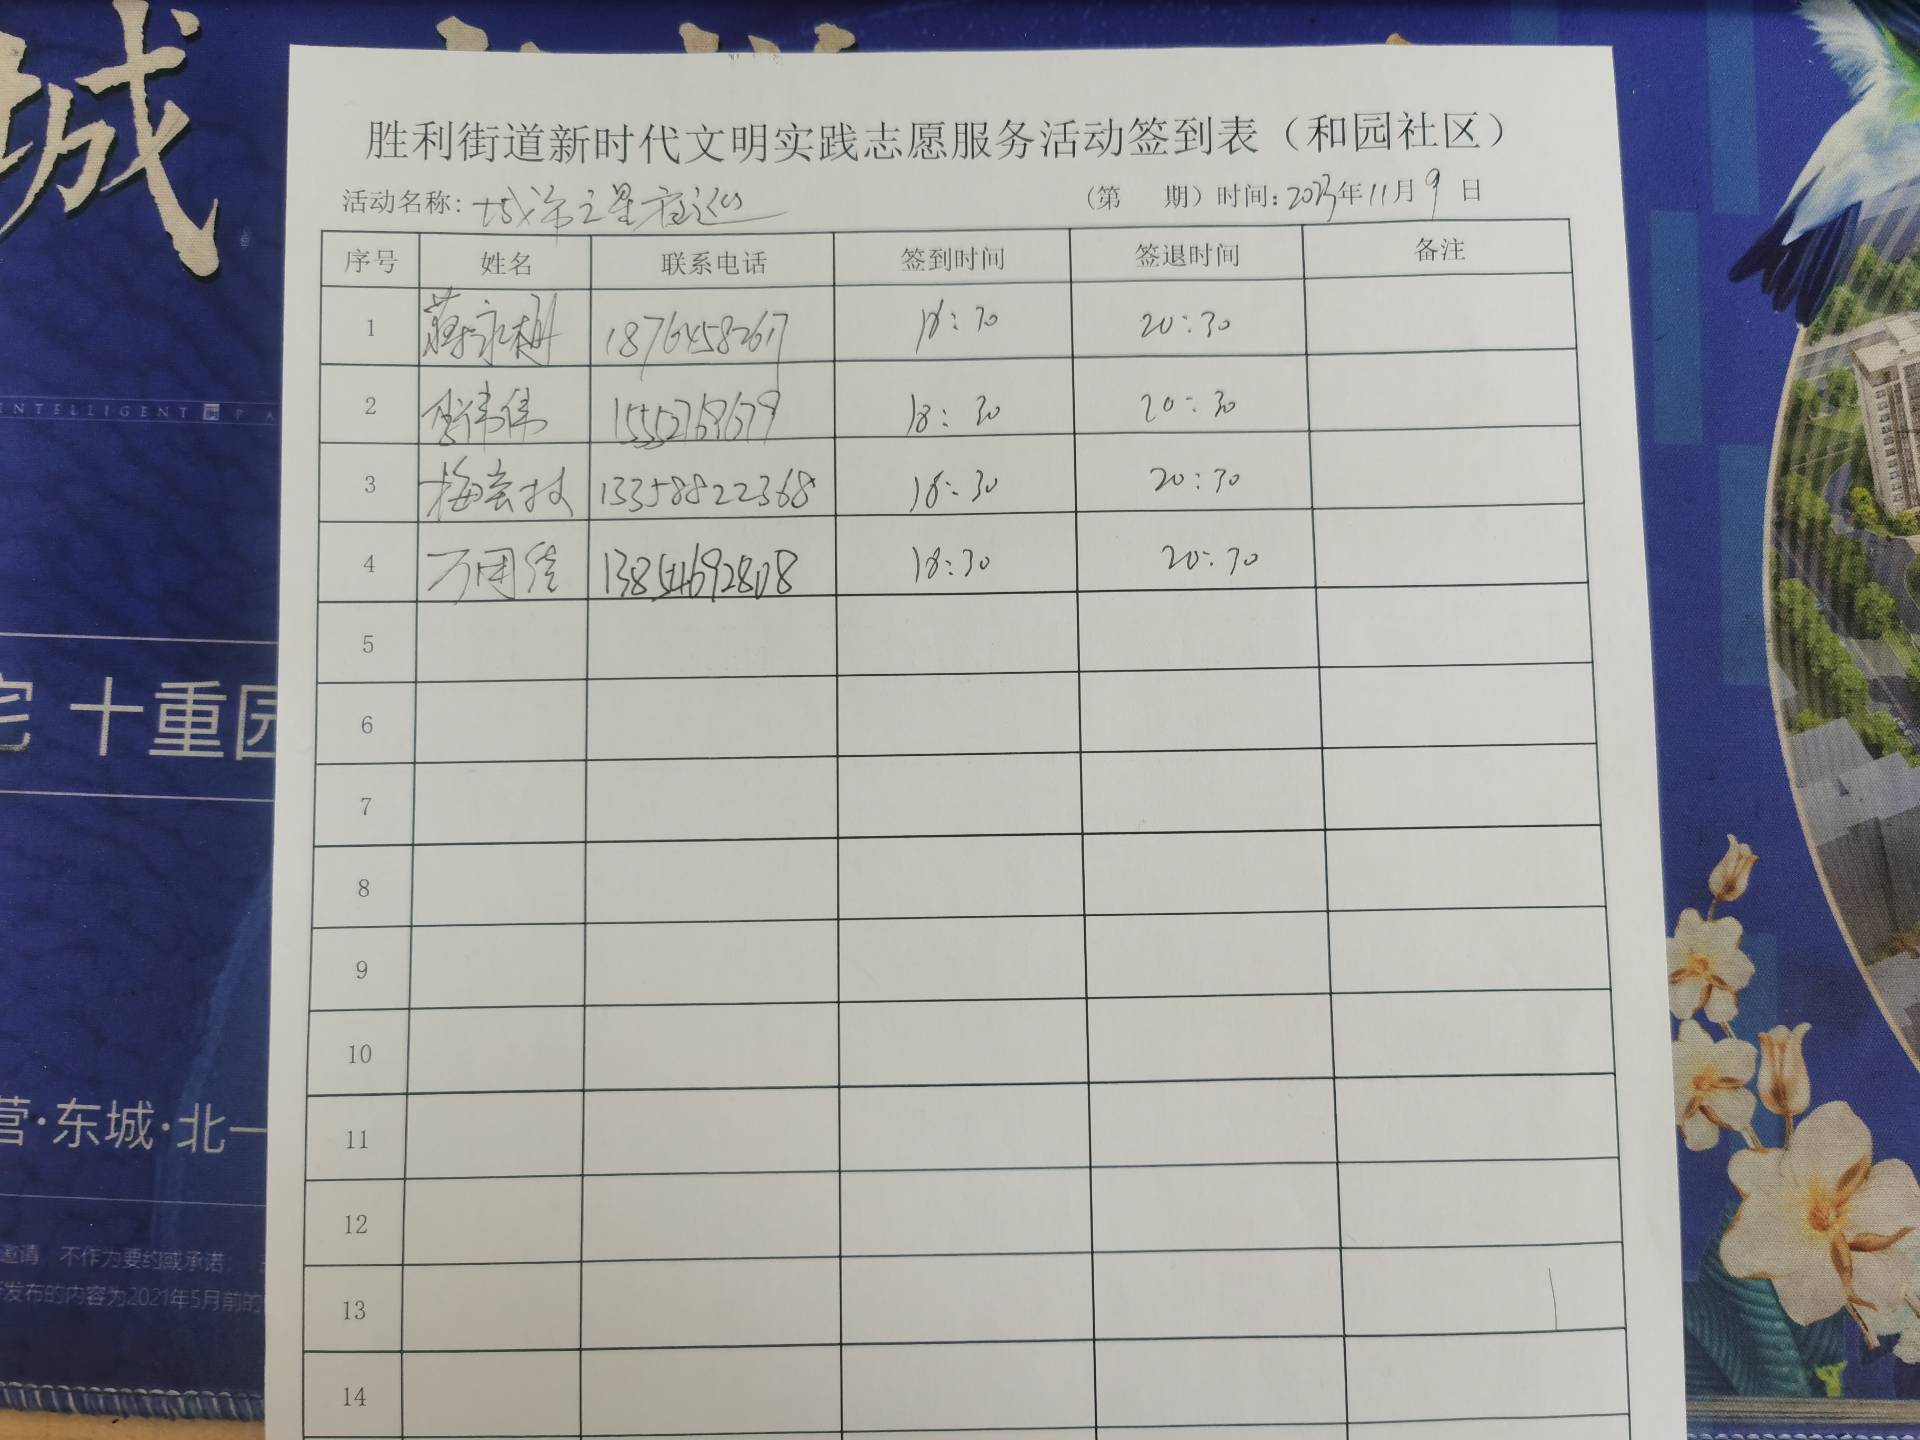 城
INTELLIGENT PA
宅 十重园
营·东城·北一
邀请 不作为要约或承诺;
发布的内容为2021年5月前的
胜利街道新时代文明实践志愿服务活动签到表（和园社区）
活动名称: 城市之星夜巡 （第 期）时间: 2023年11月9日
序号 姓名 联系电话 签到时间 签退时间 备注
1 18:30 20:30
2 李伟伟 18:30 20:30
3 13358822368 18:30 20:30
4 万周佳 13854692808 18:30 20:30
5
6
7
8
9
10
11
12
13
14